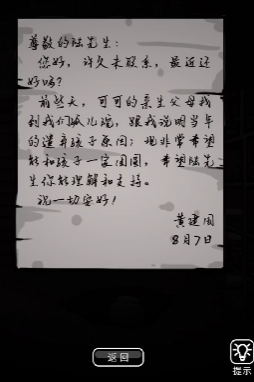 尊敬的陆先生：
您好，许久未联系，最近还
好吗？
前些天，可可的亲生父母找
到我们孤儿院，跟我说明当年
的遗弃孩子原因；现非常希望
能和孩子一家团圆，希望陆先
生你能理解和支持。
祝一切安好！
黄建国
8月7日
返回
提示